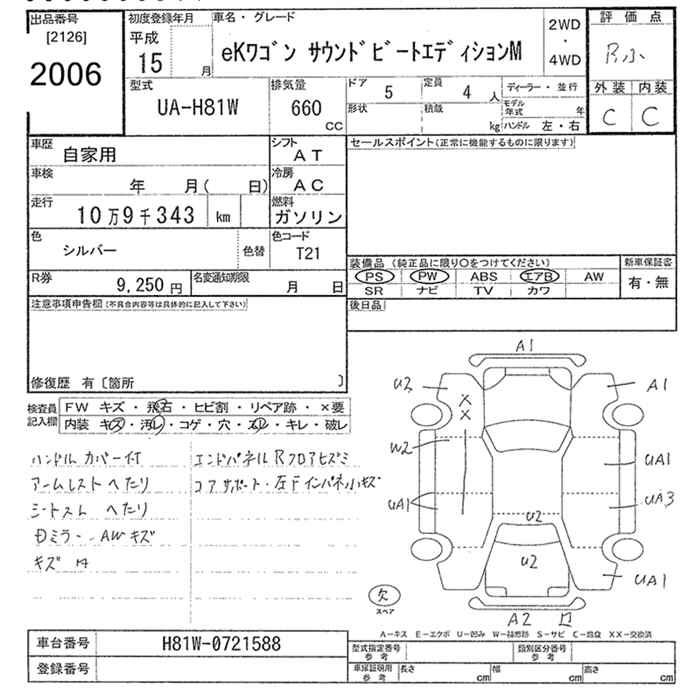 出品番号
[2126]
2006
初度登録年月
平成
15 月
車名・グレード
eKワゴン サウンドビートエディションM
2WD
・
4WD
評価点
R小
外装 内装
C C
型式
UA-H81W
排気量
660
CC
ドア
5
定員
4 人
ディーラー・並行
形状
積載
kg
モデル年式 年
ハンドル 左・右
車歴
自家用
シフト
AT
車検
年 月( 日)
冷房
AC
走行
10万9千343 km
燃料
ガソリン
色
シルバー
色替
色コード
T21
R券
9,250 円
名変通知期限
月 日
セールスポイント(正常に機能するものに限ります)
装備品 (純正品に限り○をつけてください)
PS PW ABS エアB AW
SR ナビ TV カワ
新車保証書
有・無
後日品
注意事項申告欄(不具合内容等は具体的に記入して下さい)
修復歴 有〔箇所 〕
検査員
記入欄
FW キズ・飛石・ヒビ割・リペア跡・×要
内装・キズ・汚レ・コゲ・穴・スレ・キレ・破レ
ハンドル カバー付
アームレスト ヘたり
シートスレ ヘたり
ミラー AWキズ
キズ
エンドパネル Rフロアヒズミ
コアサポート・左Fインパネ小キズ
A1
U2
A1
X
X
W2
UA1
UA1
UA3
U2
U2
UA1
A2
欠
スペア
A-キズ E-エクボ U-凹み W-補修跡 S-サビ C-腐食 XX-交換済
車台番号
H81W-0721588
登録番号
型式指定番号
参考
類別区分番号
参考
車庫証明用
参考
長さ cm
幅 cm
高さ cm